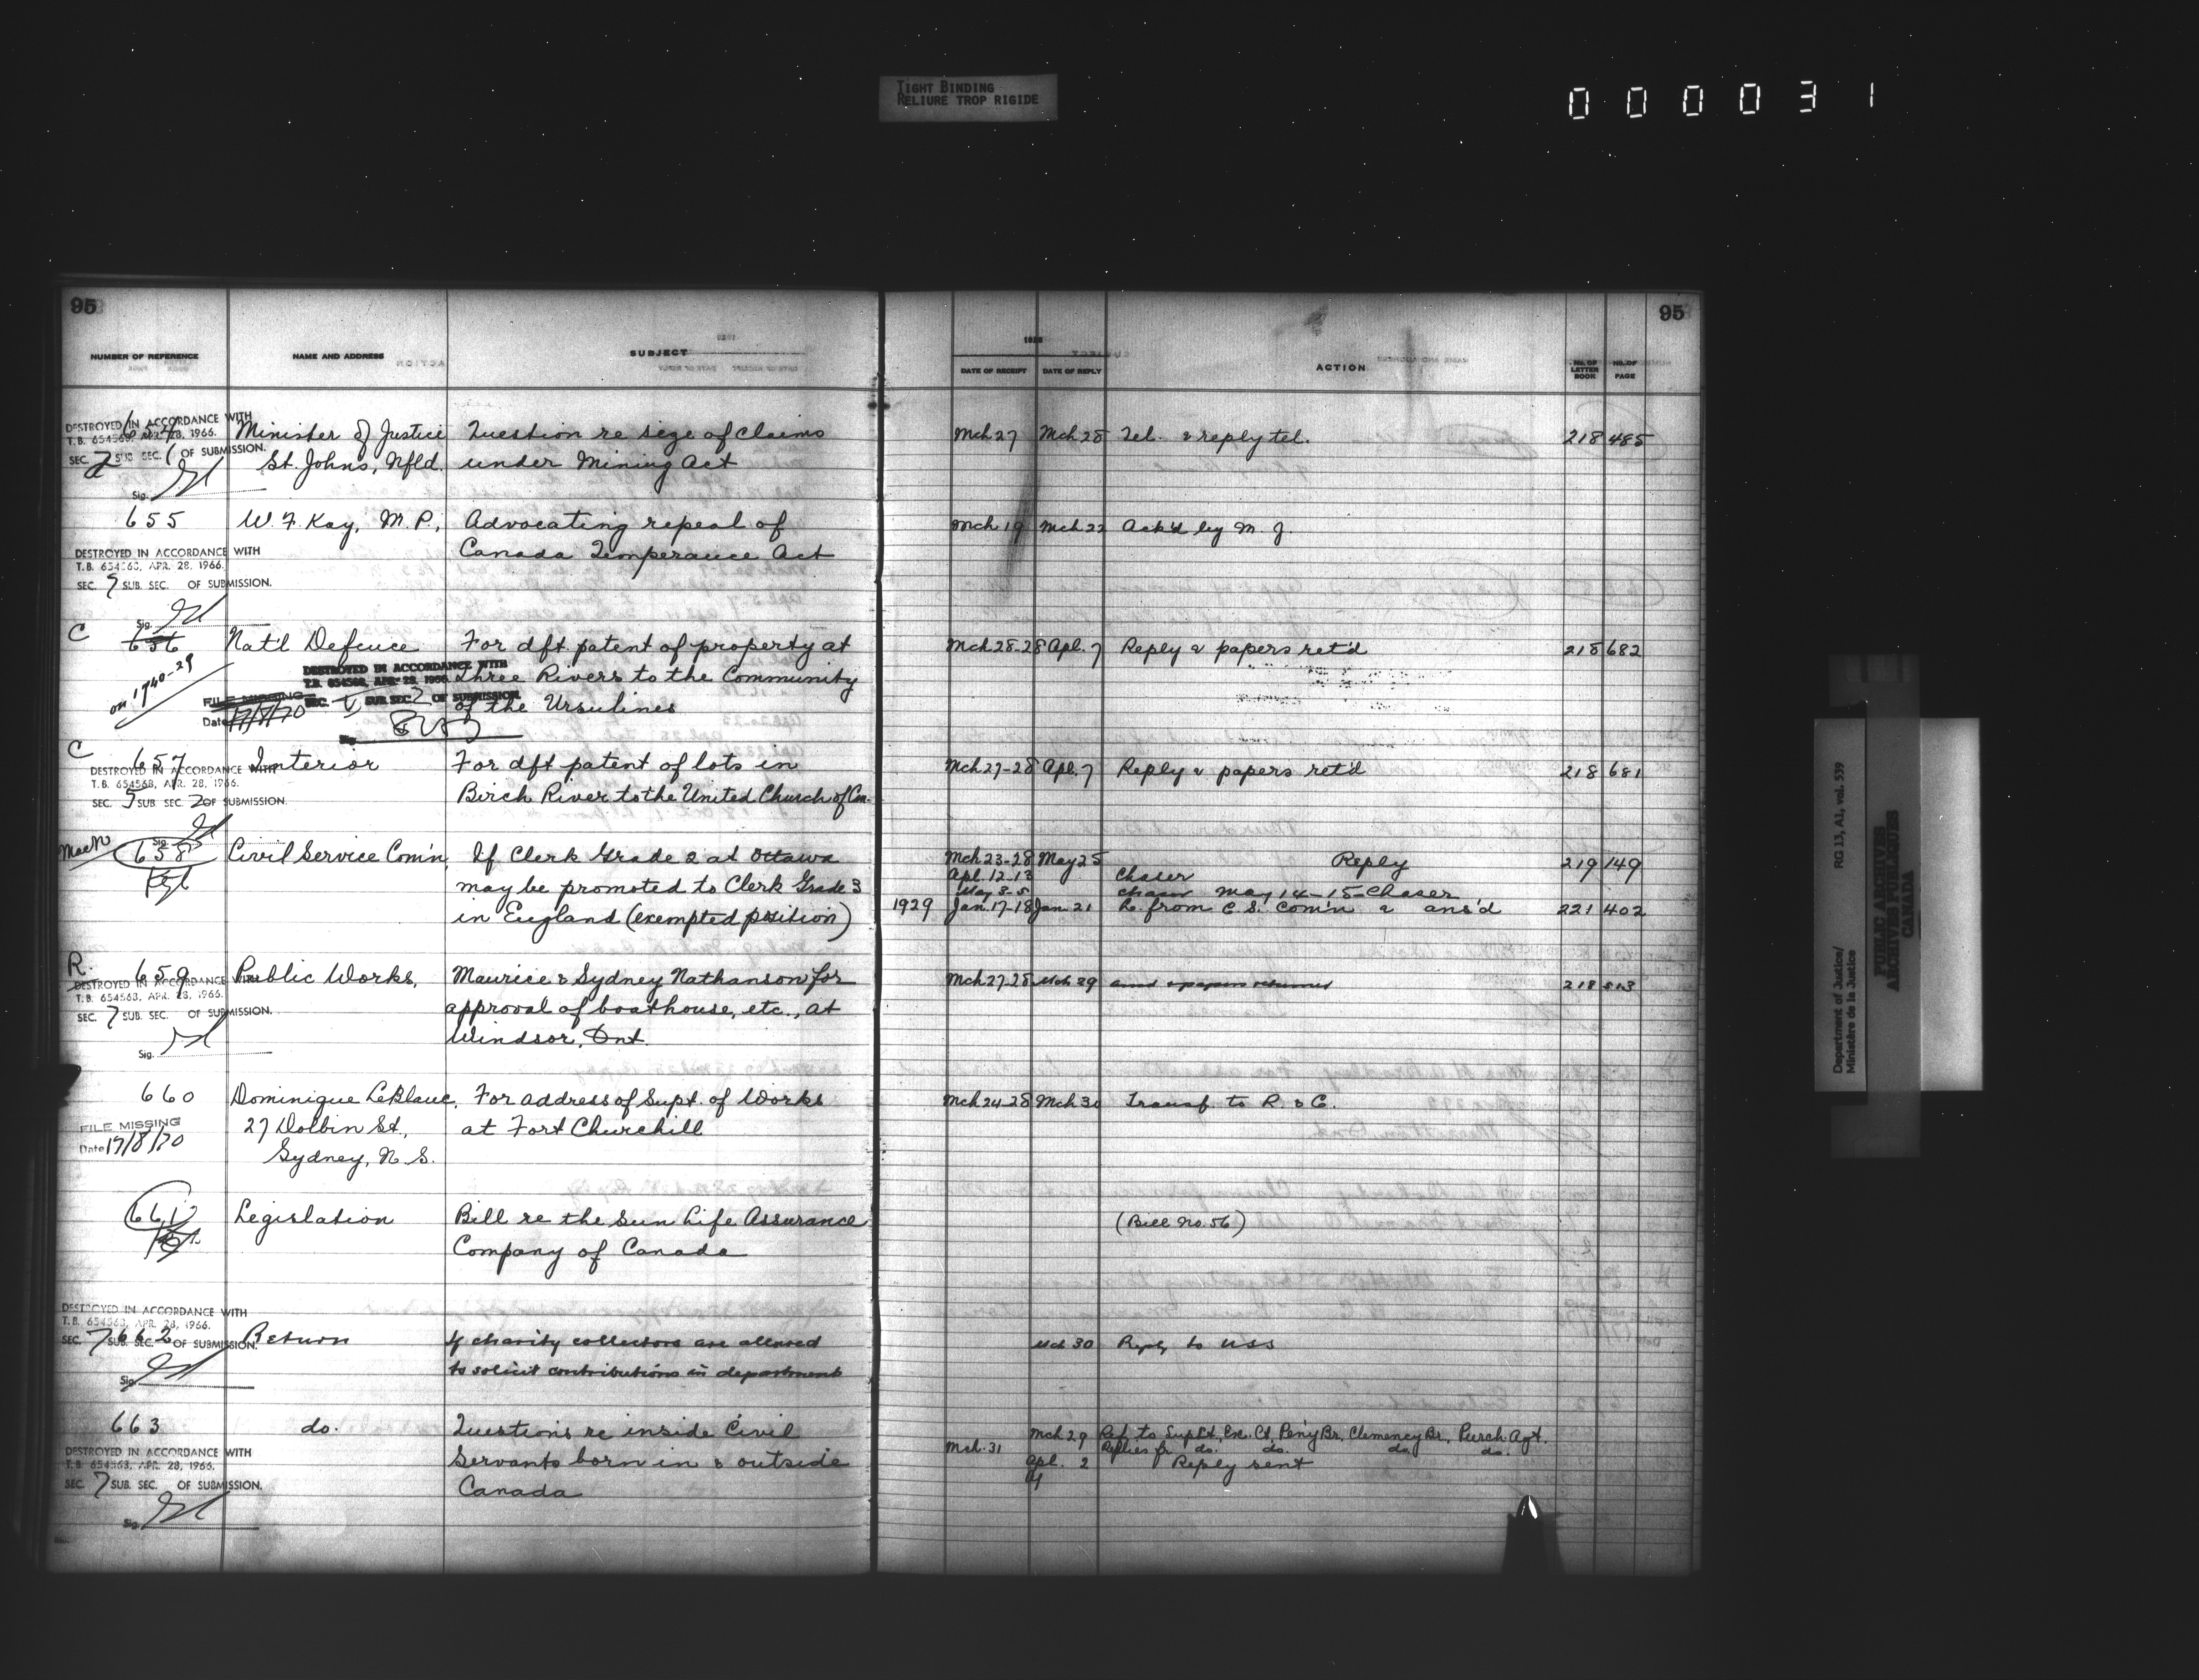 TIGHT BINDING
RELIURE TROP RIGIDE
000031
95
NUMBER OF REFERENCE NAME AND ADDRESS SUBJECT
DESTROYED IN ACCORDANCE WITH
T.B. 654568, APR. 28, 1966.
SEC. 7 SUB. SEC. 1 OF SUBMISSION.
Sig.
654 Minister of Justice Question re size of claims
St. Johns, Nfld. under Mining Act
655 W. F. Kay, M.P., Advocating repeal of
Canada Temperance Act
DESTROYED IN ACCORDANCE WITH
T.B. 654568, APR. 28, 1966.
SEC. 7 SUB. SEC. OF SUBMISSION.
Sig.
C 656 Nat'l Defence For dft patent of property at
Three Rivers to the Community
of the Ursulines
on 1740-29
DESTROYED IN ACCORDANCE WITH
T.B. 654568, APR. 28, 1966.
SEC. V SUB SEC 2 OF SUBMISSION.
FILE MISSING
Date 17/8/70
Sig.
C 657 Interior For dft patent of lots in
Birch River to the United Church of Can.
DESTROYED IN ACCORDANCE WITH
T.B. 654568, APR. 28, 1966.
SEC. 5 SUB. SEC. 2 OF SUBMISSION.
Sig.
MacN 658 Civil Service Com'n, If Clerk Grade 2 at Ottawa
may be promoted to Clerk Grade 3
in England (exempted position)
R. 659 Public Works, Maurice & Sydney Nathanson for
approval of boathouse, etc., at
Windsor, Ont.
DESTROYED IN ACCORDANCE WITH
T.B. 654568, APR. 28, 1966.
SEC. 7 SUB. SEC. OF SUBMISSION.
Sig.
660 Dominique LeBlanc, For address of Supt. of Works
27 Dolbin St., at Fort Churchill
Sydney, N.S.
FILE MISSING
Date 17/8/70
661 Legislation Bill re the Sun Life Assurance
Company of Canada
DESTROYED IN ACCORDANCE WITH
T.B. 654568, APR. 28, 1966.
SEC. 7 SUB. SEC. OF SUBMISSION.
Sig.
662 Return If charity collectors are allowed
to solicit contributions in departments
663 do. Questions re inside Civil
Servants born in & outside
Canada
DESTROYED IN ACCORDANCE WITH
T.B. 654568, APR. 28, 1966.
SEC. 7 SUB. SEC. OF SUBMISSION.
Sig.
95
1928
DATE OF RECEIPT DATE OF REPLY ACTION NO. OF LETTER BOOK NO. OF PAGE
Mch 27 Mch 28 Tel. & reply tel. 218 485
Mch 19 Mch 22 Ack'd by M. J.
Mch 28-28 Apl. 7 Reply & papers ret'd 218 682
Mch 27-28 Apl. 7 Reply & papers ret'd 218 681
Mch 23-28 May 25 Reply 219 149
Apl. 12-13 Chaser
May 3-5 Chaser May 14-15-Chaser
1929 Jan. 17-18 Jan. 21 L. from C. S. Com'n & ans'd 221 402
Mch 27-28 Mch 29 and papers returned 218 513
Mch 24-28 Mch 30 Transf. to R. & C.
(Bill No. 56)
Mch 30 Reply to USS
Mch 29 Ref. to Supt., Ex. Ct., Pen'y Br., Clemency Br., Purch. Agt.
Mch. 31 Replies fr. do. do. do. do.
Apl. 2 Reply sent
4
Department of Justice/ RG 13, A1, vol. 539
Ministère de la Justice
PUBLIC ARCHIVES
ARCHIVES PUBLIQUES
CANADA